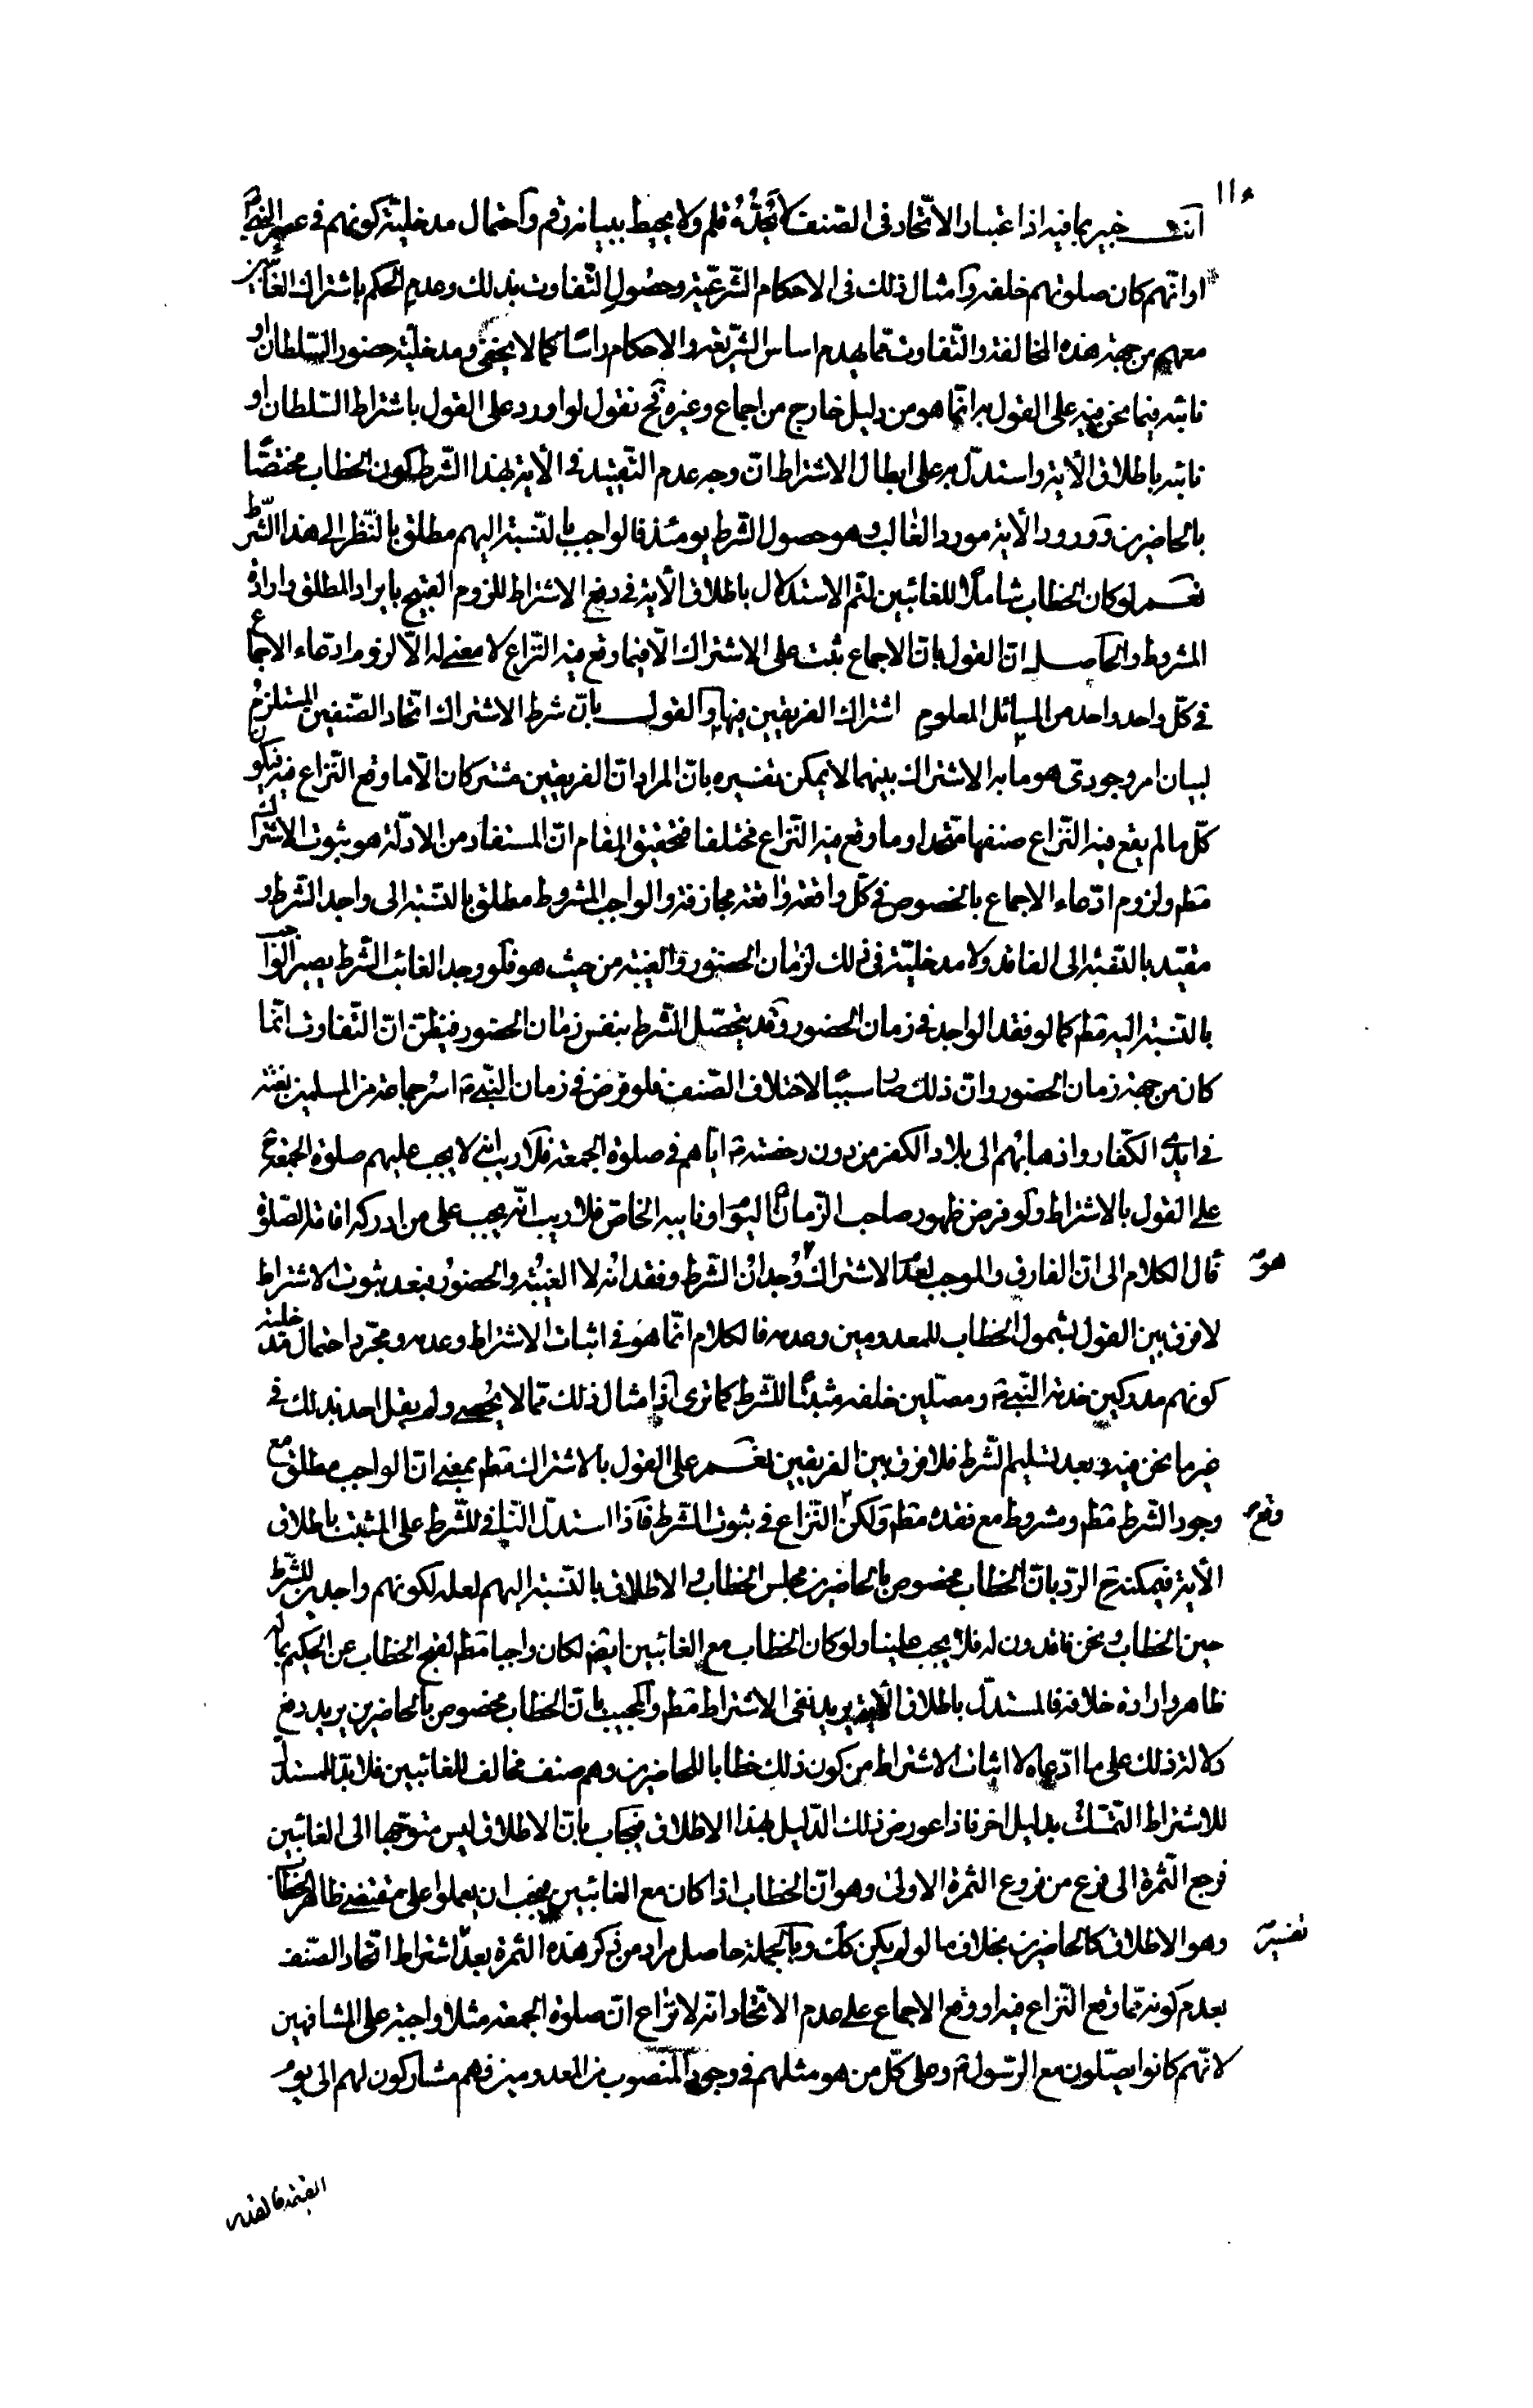 انت خبير بما فيه اذ اعتبار الاتّحاد فى الصّنف لا يحدّه قلم ولا يحيط ببيانه رقم واحتمال مدخليّة كونهم فى عصر النبىّ
او انّهم كان صلوتهم خلفه وامثال ذلك فى الاحكام الشّرعيّة وحصول التّفاوت بذلك وعدم الحكم باشتراك الغائبين
معهم من جهة هذه المخالفة والتّفاوت ممّا يهدم اساس الشّريعة والاحكام راسًا كما لا يخفى ومدخليّة حضور السّلطان او
نائبه فيما نحن فيه على القول به انّما هو من دليل خارج من اجماع وغيره فح نقول لو اورد على القول باشتراط السّلطان او
نائبه باطلاق الآية واستدلّ به على ابطال الاشتراط انّ وجه عدم التّقييد فى الآية بهذا الشّرط كون الخطاب مختصًّا
بالحاضرين وورود الآية مورد الغالب وهو حصول الشّرط يومئذ فالواجب بالنّسبة اليهم مطلق بالنّظر الى هذا الشّرط
نعم لو كان الخطاب شاملًا للغائبين لتمّ الاستدلال باطلاق الآية فى دفع الاشتراط للزوم القبيح بايراد المطلق وارادة
المشروط والحاصل انّ القول بانّ الاجماع ثبت على الاشتراك الّا فيما وقع فيه النّزاع لا معنى له الّا لزوم ادّعاء الاجماع
فى كلّ واحد واحد من المسائل المعلوم اشتراك الفريقين فيها والقول بانّ شرط الاشتراك اتّحاد الصّنفين المستلزم
لبيان امر وجودى هو ما به الاشتراك بينهما لا يمكن تفسيره بانّ المراد انّ الفريقين مشتركان الّا ما وقع النّزاع فيه فيكون
كلّ ما لم يقع فيه النّزاع صنفها متّحدا وما وقع فيه النّزاع مختلفا فتحقيق المقام انّ المستفاد من الادلّة هو ثبوت الاشتراك
مطم ولزوم ادّعاء الاجماع بالخصوص فى كلّ واقعة واقعة مجازفة والواجب المشروط مطلق بالنّسبة الى واجد الشّرط و
مقيّد بالنّسبة الى الفاقد ولا مدخليّة فى ذلك لزمان الحضور والغيبة من حيث هو فلو وجد الغائب الشّرط يصير الواجب
بالنّسبة اليه مطم كما لو فقد الواجد فى زمان الحضور وقد يتحصّل الشّرط بنفس زمان الحضور فيظنّ انّ التّفاوت انّما
كان من جهة زمان الحضور وانّ ذلك صار سببًا لاختلاف الصّنف فلو فرض فى زمان النّبىّ ص اسر جماعة من المسلمين بغتة
فى ايدى الكفّار واذهابهم الى بلاد الكفر من دون رخصته ص ايّاهم فى صلوة الجمعة فلا ريب انّه لا يجب عليهم صلوة الجمعة ح
على القول بالاشتراط ولو فرض ظهور صاحب الزّمان ع اليوم او نايبه الخاصّ فلا ريب انّه يجب على من ادركه اقامة الصّلوة
فآل الكلام الى انّ الفارق والموجب لعدم الاشتراك هو وجدان الشّرط وفقدانه لا الغيبة والحضور فبعد ثبوت الاشتراط
لا فرق بين القول بشمول الخطاب للمعدومين وعدمه فالكلام انّما هو فى اثبات الاشتراط وعدمه ومجرّد احتمال مدخلية
كونهم مدركين خدمة النّبىّ ص ومصلّين خلفه مثبتًا للشّرط كما ترى اذ امثال ذلك ممّا لا يحصى ولم يقل احد بذلك فى
غير ما نحن فيه وبعد تسليم الشّرط فلا فرق بين الفريقين نعم على القول بالاشتراك مطم بمعنى انّ الواجب مطلق مع
وجود الشّرط مطم ومشروط مع فقده مطم ولكن وقع النّزاع فى ثبوت الشّرط فاذا استدلّ النّافى للشّرط على المثبت باطلاق
الآية فيمكنه ح الردّ بانّ الخطاب مخصوص بالحاضرين مجلس الخطاب والاطلاق بالنّسبة اليهم لعلّه لكونهم واجدين للشّرط
حين الخطاب ونحن فاقدون له فلا يجب علينا ولو كان الخطاب مع الغائبين ايضم لكان واجبا مطم لقبح الخطاب عن الحكيم بما له
ظاهر وارادة خلافه فالمستدلّ باطلاق الآية يريد نفى الاشتراط مطم والمجيب بانّ الخطاب مخصوص بالحاضرين يريد دفع
دلالة ذلك على ما ادّعاه لا اثبات الاشتراط من كون ذلك خطابا للحاضرين وهم صنف مخالف للغائبين فلا بدّ للمستدلّ
للاشتراط التمسّك بدليل اخر فاذا عورض ذلك الدّليل بهذا الاطلاق فيجاب بانّ الاطلاق ليس متوجّها الى الغائبين
فرجع الثّمرة الى فرع من فروع الثّمرة الاولى وهو انّ الخطاب اذا كان مع الغائبين فيجب ان يعملوا على مقتضى ظاهر الخطاب
وهو الاطلاق كالحاضرين بخلاف ما لو لم يكن كك وبالجملة حاصل مراد من ذكر هذه الثّمرة بعد تفسير اشتراط اتّحاد الصّنف
بعدم كونه ممّا وقع النّزاع فيه او وقع الاجماع على عدم الاتّحاد انّه لا نزاع انّ صلوة الجمعة مثلا واجبة على المشافهين
لانّهم كانوا يصلّون مع الرّسول ص وعلى كلّ من هو مثلهم فى وجود المنصوب من المعدومين فهم مشاركون لهم الى يوم